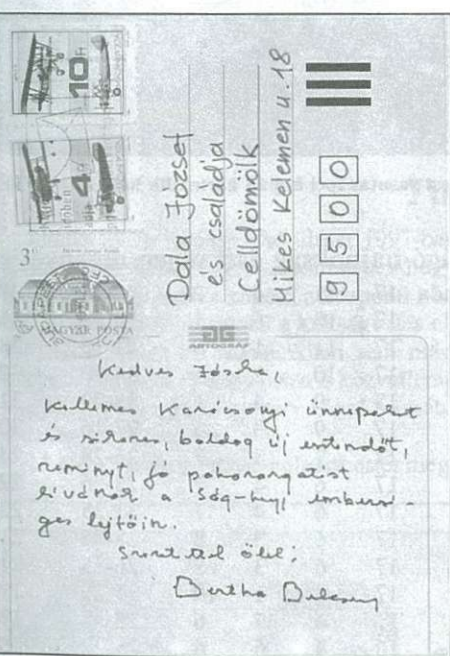 10 Ft
4 Ft
3
MAGYAR POSTA
Dala József
és családja
Celldömölk
Mikes Kelemen u. 18
9500
ARTOGRÁF
Kedves Jóska,
Kellemes Karácsonyi ünnepeket
és sikeres, boldog új esztendőt,
reményt, jó
kivánok a Ság-hegy embersé-
ges lejtőin.
Szeretettel ölel:
Bertha Bulcsu